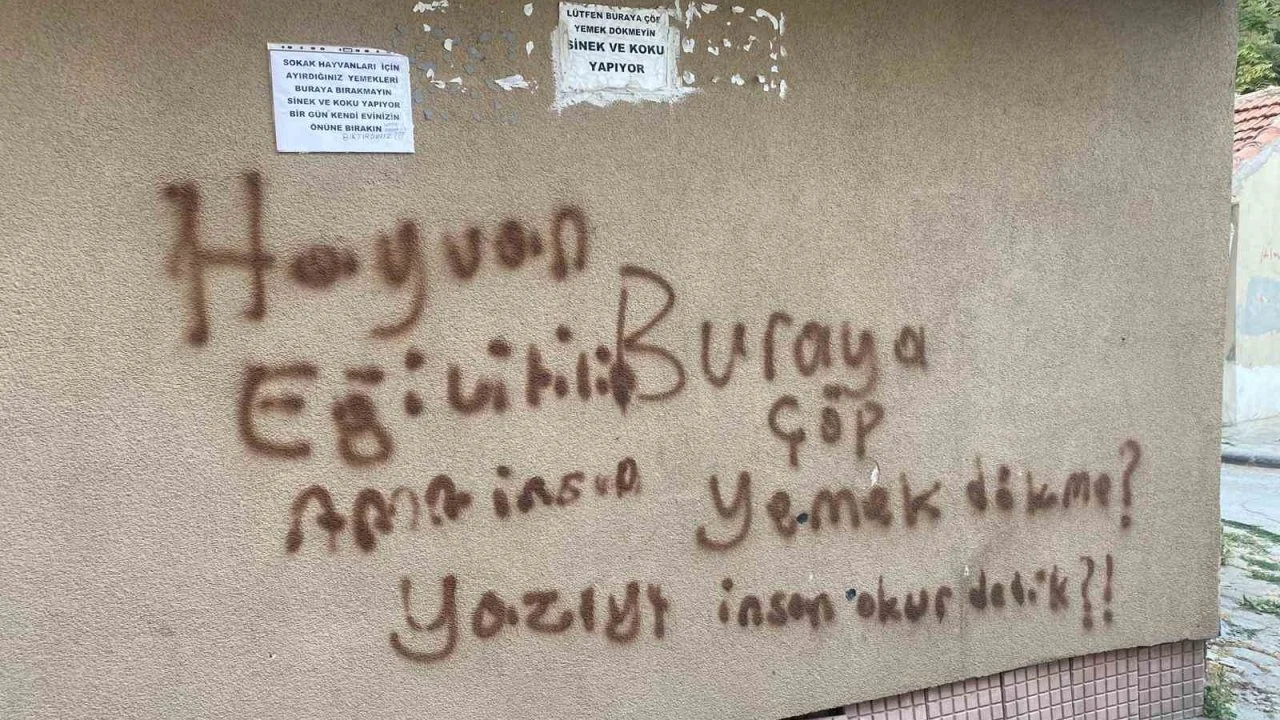 SOKAK HAYVANLARI İÇİN
AYIRDIĞINIZ YEMEKLERİ
BURAYA BIRAKMAYIN
SİNEK VE KOKU YAPIYOR
BİR GÜN KENDİ EVİNİZİN
ÖNÜNE BIRAKIN
LÜTFEN BURAYA ÇÖP
YEMEK DÖKMEYİN
SİNEK VE KOKU
YAPIYOR
Hayvan
Eğitilir
Ama insan
Buraya
çöp
yemek dökme?
yazıyı insan okur dedik?!